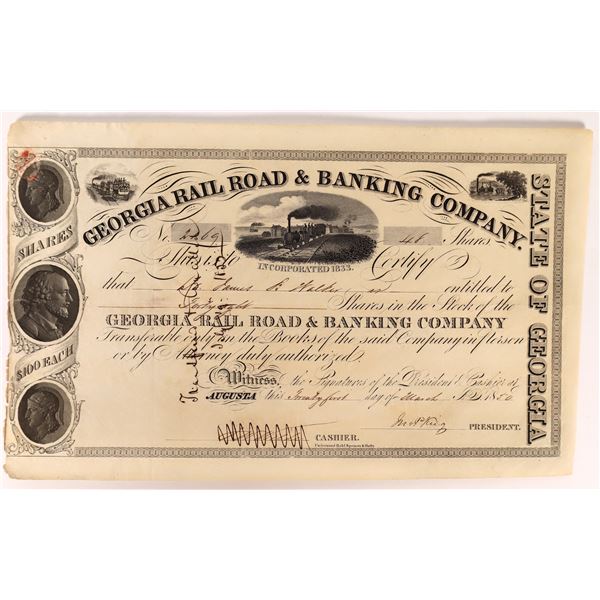 GEORGIA RAIL ROAD & BANKING COMPANY.
No. 2269
48 Shares
INCORPORATED 1833.
This is to Certify
that James R Walker is entitled to
Forty eight Shares in the Stock of the
GEORGIA RAIL ROAD & BANKING COMPANY
Transferable only on the Books of the said Company in person
or by Attorney duly authorized.
Witness, the Signatures of the President & Cashier at
AUGUSTA this Twenty first day of March A.D. 1850
PRESIDENT.
CASHIER.
SHARES
$100 EACH
STATE OF GEORGIA